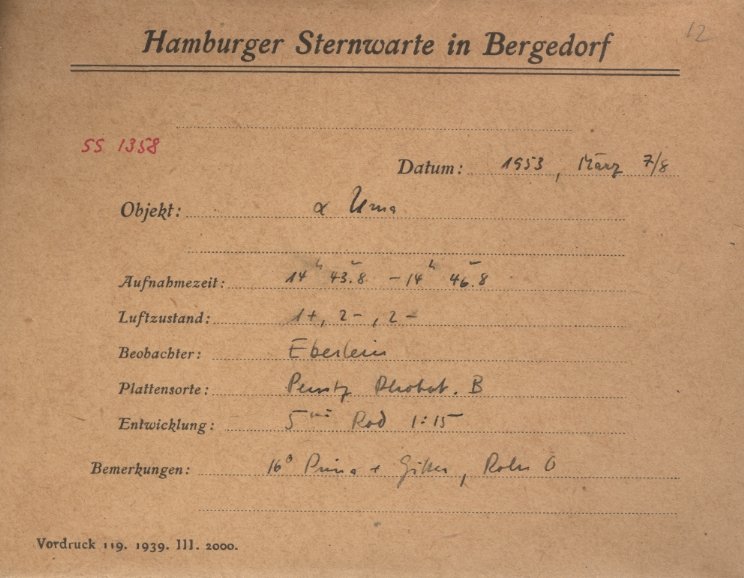 12
Hamburger Sternwarte in Bergedorf
SS 1358
Datum: 1953, März 7/8
Objekt: α Uma
Aufnahmezeit: 14ʰ 43.ᵐ8 – 14ʰ 46.ᵐ8
Luftzustand: 1+, 2–, 2–
Beobachter: Eberlein
Plattensorte: Perutz B
Entwicklung: 5 Rod 1:15
Bemerkungen: 16° + Gitter, Rohr
Vordruck 119. 1939. III. 2000.